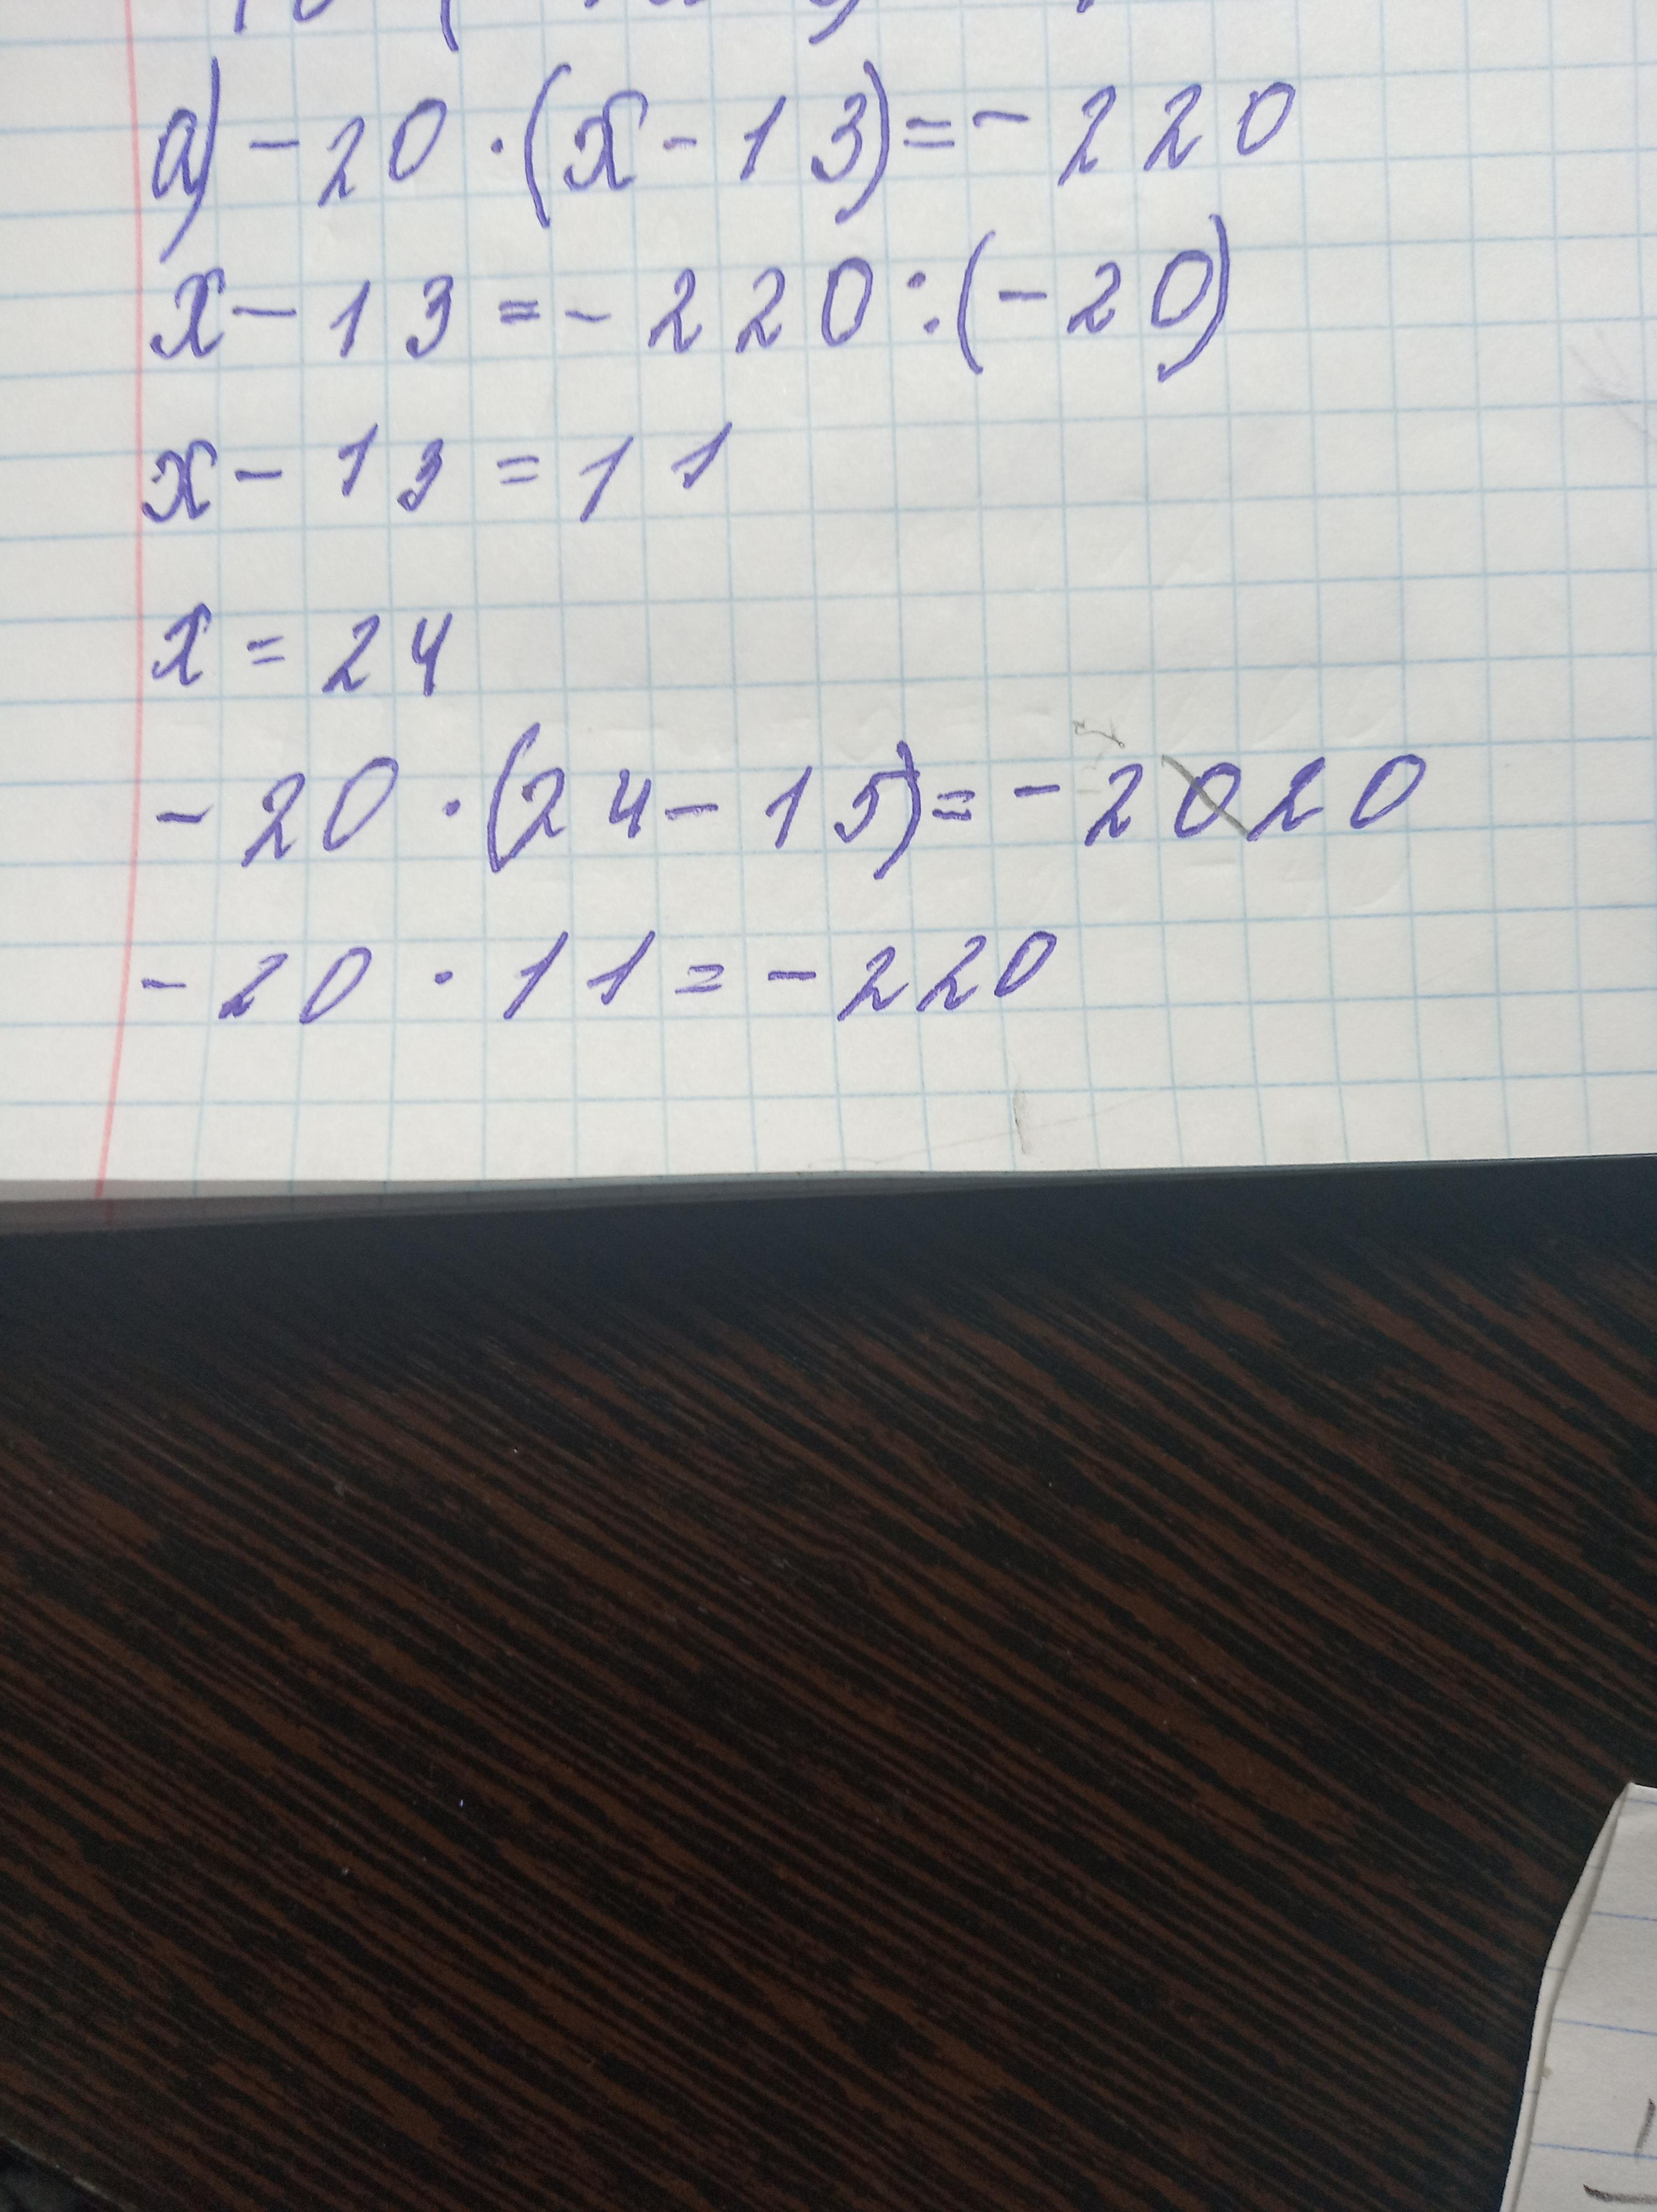 а) - 20 · (х - 13) = - 220
х - 13 = - 220 : (- 20)
х - 13 = 11
х = 24
- 20 · (24 - 15) = - 2020
- 20 · 11 = - 220